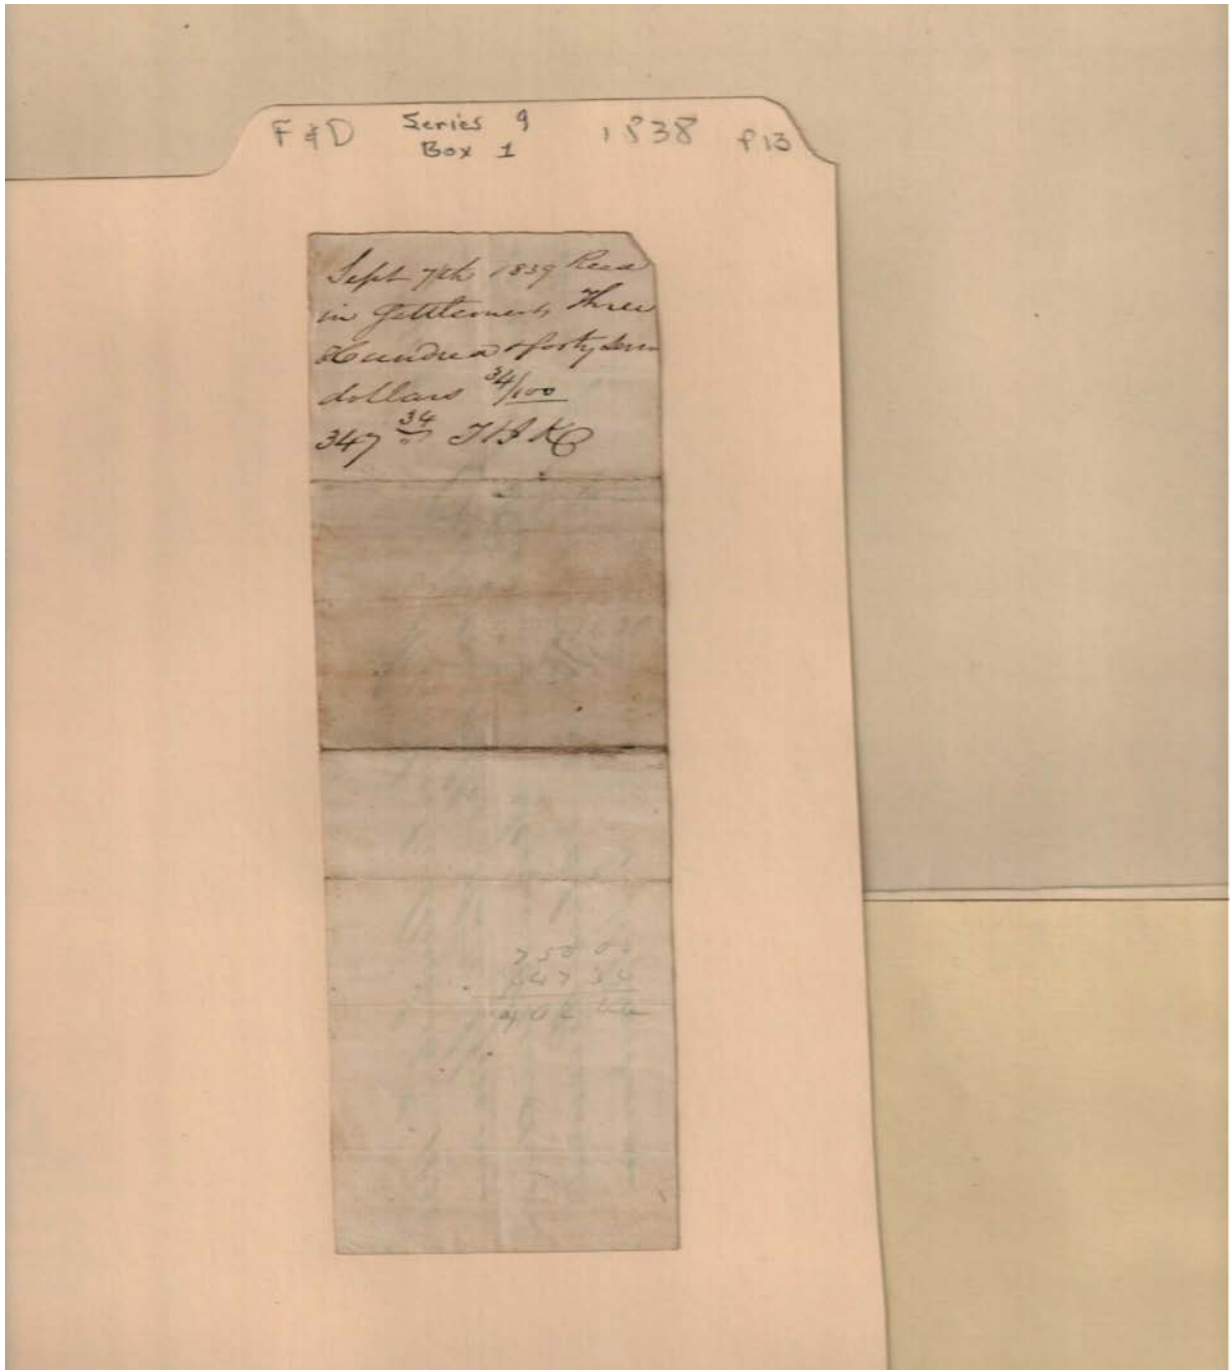 F & D Series 9 1838 f13
Box 1
Sept 7th 1839 Recd
in Settlement, Three
Hundred & forty Seven
dollars 34/100
347 34
750 00
47 34